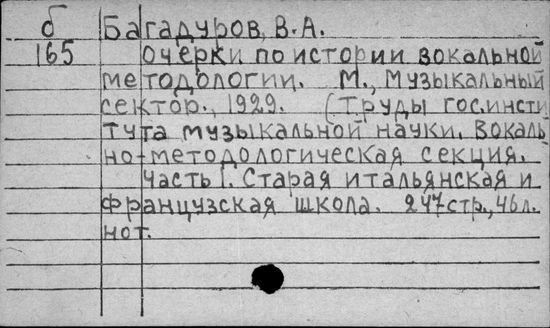 б Багадуров, В.А.
165 Очерки по истории вокальной
методологии. М., Музыкальный
сектор., 1929. (Труды гос.инсти
тута музыкальной науки. Вокаль
но-методологическая секция.
Часть I. Старая итальянская и
французская школа. 247стр., 46л.
нот.